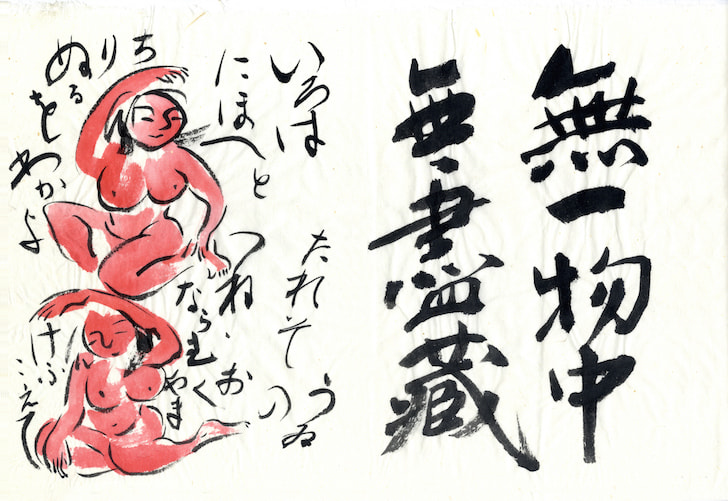 無一物中
無盡藏
いろは
にほへと
ちりぬるを
わかよ
たれそ
つね
ならむ
うゐの
おくやま
けふ
こえて